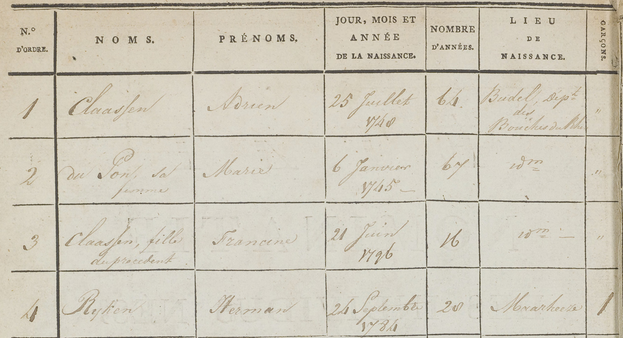 N.º D'ORDRE. NOMS. PRÉNOMS. JOUR, MOIS ET ANNÉE DE LA NAISSANCE. NOMBRE D'ANNÉES. LIEU DE NAISSANCE. GARÇONS.
1 Claassen Adrien 25 Juillet 1748 64 Budel, Dept. des Bouches du Rhin "
2 du Pont, sa femme Marie 6 Janvier 1745 67 idm "
3 Claassen, fille du precedent Francine 21 Juin 1796 16 idm "
4 Ryken Herman 24 Septembre 1784 28 Maarheeze 1